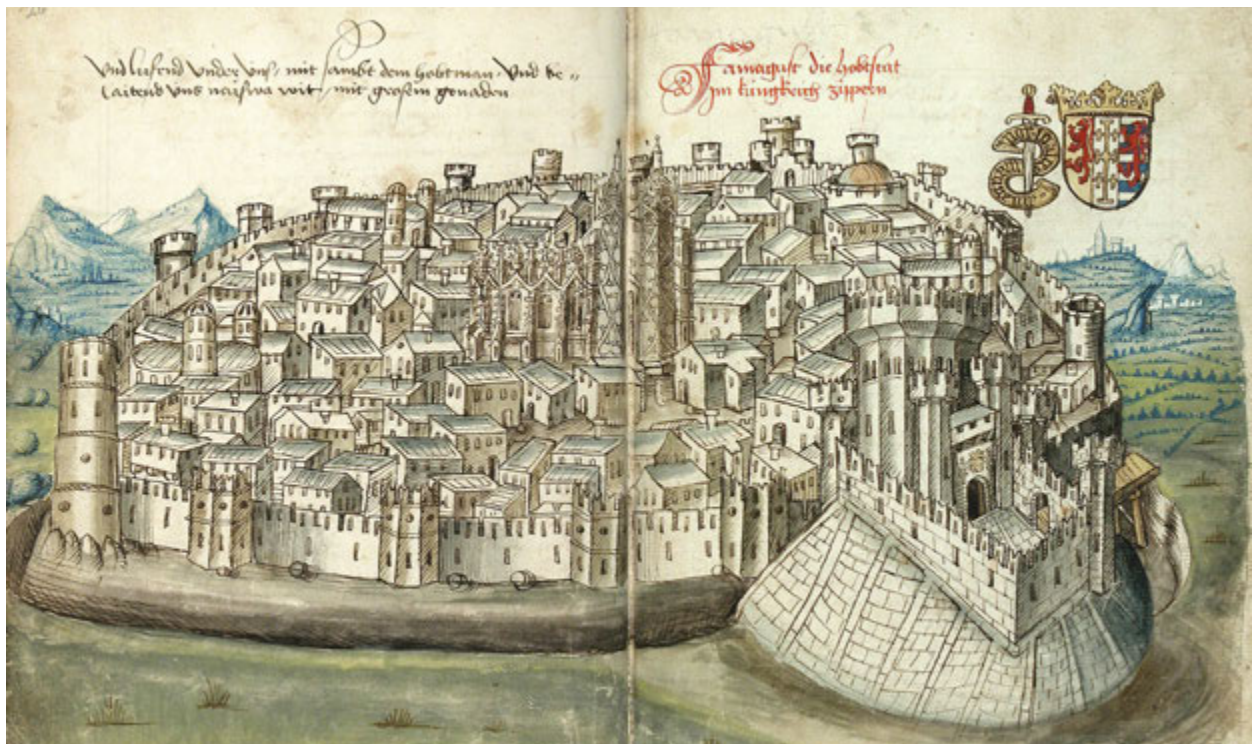 Und lufend under uns, mit sambt dem hobtman. Und be=
laitend uns mit grosen genaden
Famagust die hobtstat
Im küngkreich zippern